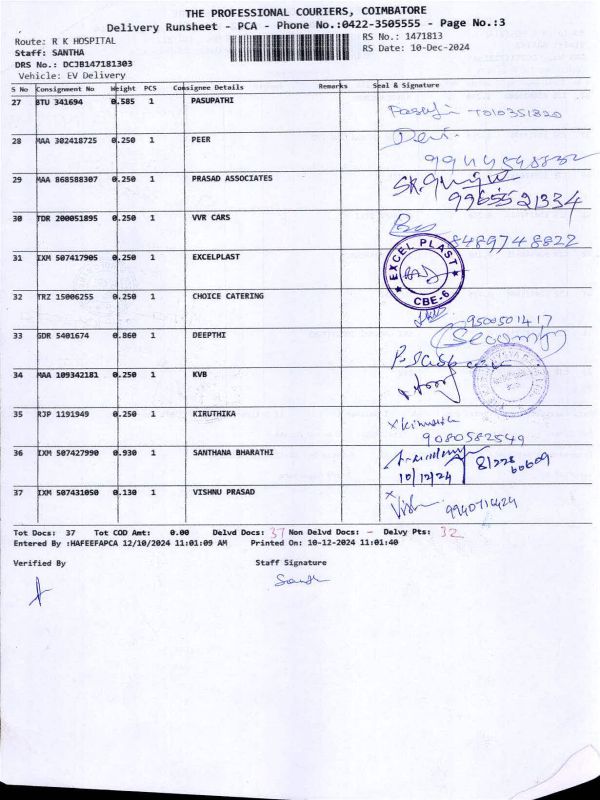 THE PROFESSIONAL COURIERS, COIMBATORE
Delivery Runsheet - PCA - Phone No.:0422-3505555 - Page No.:3
Route: R K HOSPITAL
RS No.: 1471813
Staff: SANTHA
RS Date: 10-Dec-2024
DRS No.: DCJB147181303
Vehicle: EV Delivery
S No Consignment No Weight PCS Consignee Details Remarks Seal & Signature
27 BTU 341694 0.585 1 PASUPATHI
28 MAA 302418725 0.250 1 PEER
29 MAA 868588307 0.250 1 PRASAD ASSOCIATES
9965521334
30 TDR 200051895 0.250 1 VVR CARS
8489748822
31 IXM 507417905 0.250 1 EXCELPLAST
EXCEL PLAST
CBE-6
32 TRZ 15006255 0.250 1 CHOICE CATERING
9500501417
33 GDR 5401674 0.860 1 DEEPTHI
34 MAA 109342181 0.250 1 KVB
35 RJP 1191949 0.250 1 KIRUTHIKA
9080582549
36 IXM 507427990 0.930 1 SANTHANA BHARATHI
10/12/24
37 IXM 507431050 0.130 1 VISHNU PRASAD
Tot Docs: 37 Tot COD Amt: 0.00 Delvd Docs: 37 Non Delvd Docs: - Delvy Pts: 32
Entered By :HAFEEFAPCA 12/10/2024 11:01:09 AM Printed On: 10-12-2024 11:01:40
Verified By Staff Signature